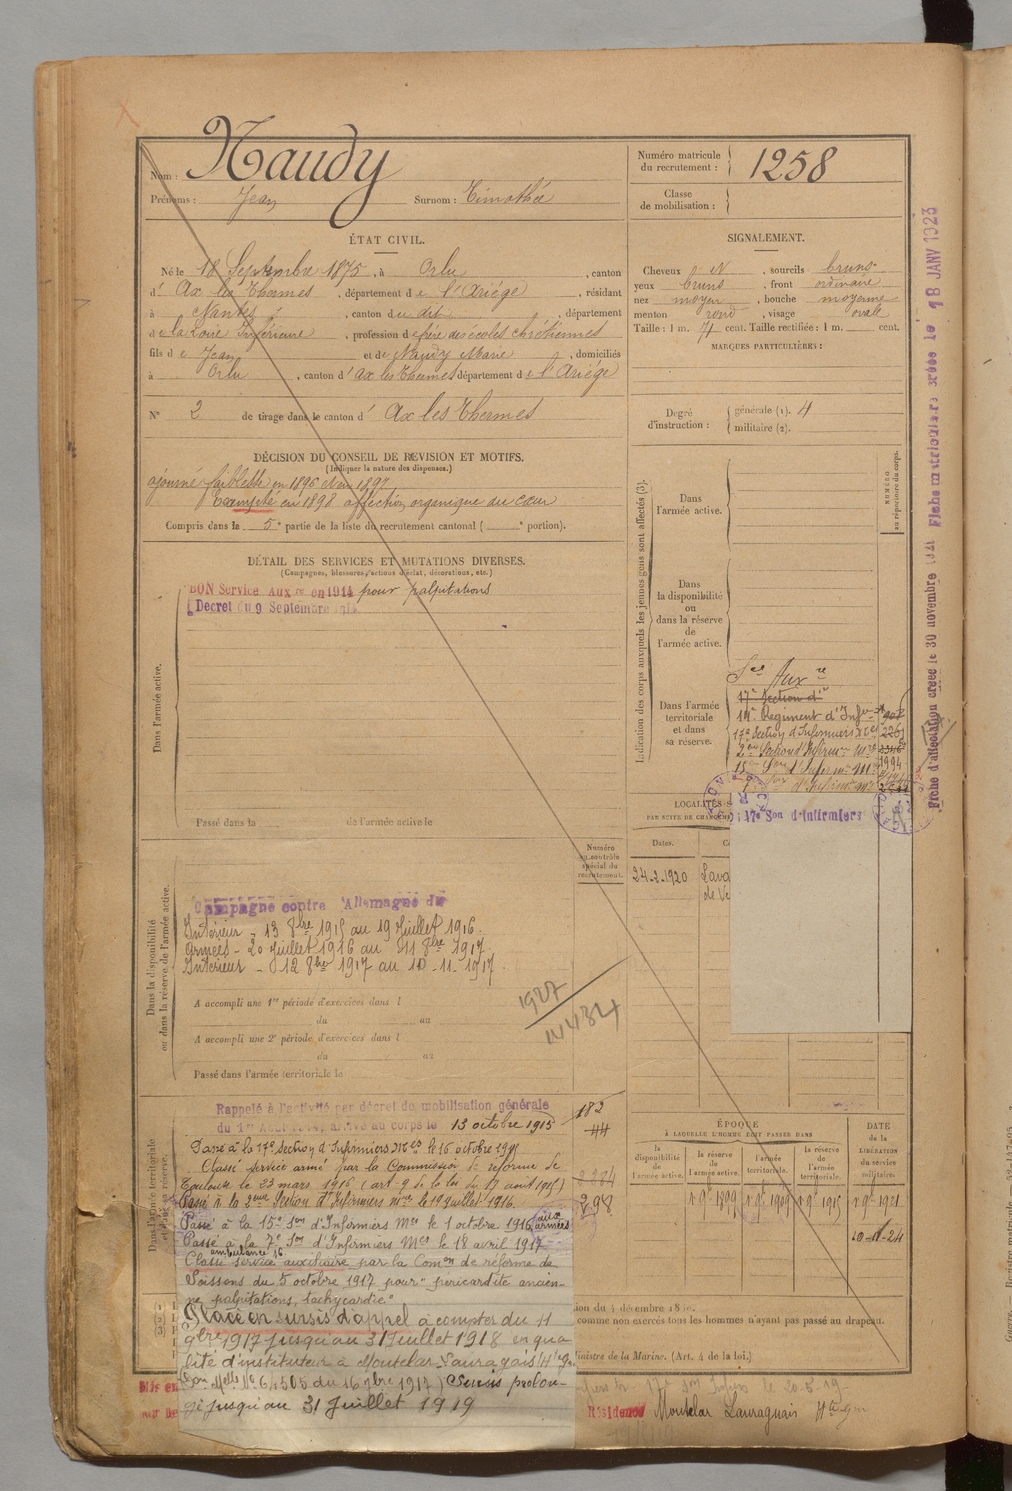 Nom : Naudy
Prénoms : Jean Surnom : Timothée
Numéro matricule du recrutement : 1258
Classe de mobilisation :
ÉTAT CIVIL.
Né le 18 Septembre 1875, à Orlu, canton
d' Ax les Thermes, département de l'Ariège, résidant
à Nantes, canton du dit, département
de la Loire Inférieure, profession de frère des écoles chrétiennes
fils de Jean et de Naudy Marie, domiciliés
à Orlu, canton d' Ax les Thermes département de l'Ariège
N° 2 de tirage dans le canton d' Ax les Thermes
SIGNALEMENT.
Cheveux N, sourcils bruns
yeux bruns, front ordinaire
nez moyen, bouche moyenne
menton rond, visage ovale
Taille : 1 m. 71 cent. Taille rectifiée : 1 m. cent.
MARQUES PARTICULIÈRES :
Degré d'instruction : générale (1). 4
militaire (2).
DÉCISION DU CONSEIL DE REVISION ET MOTIFS.
(Indiquer la nature des dispenses.)
ajourné faiblesse en 1896 et en 1897
Exempté en 1898 affection organique du cœur
Compris dans la 5e partie de la liste du recrutement cantonal ( e portion).
DÉTAIL DES SERVICES ET MUTATIONS DIVERSES.
(Campagnes, blessures, actions d'éclat, décorations, etc.)
BON Service Aux re en 1914 pour palpitations
Decret du 9 Septembre 1914
Dans l'armée active.
Passé dans la de l'armée active le
Indication des corps auxquels les jeunes gens sont affectés (3).
NUMÉRO au répertoire du corps.
Dans l'armée active.
Dans la disponibilité ou dans la réserve de l'armée active.
Dans l'armée territoriale et dans sa réserve.
Sce Aux re
17e Section d'
14e Régiment d'Infie
17e Section d'Infirmiers
15e Son d'Infirm
1994
17e Son d'Infirmiers
LOCALITÉS
PAR SUITE DE CHANGEM
Dates.
24-2-1920 Lava
de Ve
Numéro au contrôle spécial du recrutement.
Dans la disponibilité ou dans la réserve de l'armée active.
Campagne contre l'Allemagne du
Intérieur - 13 8bre 1915 au 19 Juillet 1916.
Armées - 20 Juillet 1916 au 11 8bre 1917.
Intérieur - 12 8bre 1917 au 10-11-1917.
A accompli une 1re période d'exercices dans l
du au
A accompli une 2e période d'exercices dans l
du au
Passé dans l'armée territoriale le
1927
14434
Dans l'armée territoriale et dans sa réserve.
Rappelé à l'activité par décret de mobilisation générale
du 1er Août 1914, arrivé au corps le 13 octobre 1915
182
44
Passé à la 17e Section d'Infirmiers Mres le 16 octobre 1915
Classé service armé par la Commission de réforme de
Toulouse le 23 mars 1916 (art 9 de la loi du 17 aout 1915)
Passé à la 2ème Section d'Infirmiers mre le 19 Juillet 1916.
298
Passé à la 15e Son d'Infirmiers Mres le 1 octobre 1916 aux armées
Passé à la 7e Son d'Infirmiers Mres le 18 avril 1917
ambulance 16
Classé service auxiliaire par la Comon de réforme de
Soissons du 5 octobre 1917 pour "péricardite ancien-
ne palpitations, tachycardie"
Placé en sursis d'appel à compter du 11
9bre 1917 jusqu'au 31 Juillet 1918 en qua
lité d'instituteur à Montclar-Lauragais (Hte Gne
Don Melle N° 64505 du 16 9bre 1917) Sursis prolon-
gé jusqu'au 31 Juillet 1919
ÉPOQUE
À LAQUELLE L'HOMME DOIT PASSER DANS
la disponibilité de l'armée active.
la réserve de l'armée active.
l'armée territoriale.
la réserve de l'armée territoriale.
DATE de la LIBÉRATION du service militaire.
1 9bre 1899
1 9bre 1909
1 9bre 1915
1 9bre 1921
10-11-24
comme non exercés tous les hommes n'ayant pas passé au drapeau.
Ministre de la Marine. (Art. 4 de la loi.)
Résidence Montclar Lauraguais Hte Gne
Fiche d'affectation créée le 30 novembre 1921 Fiche matriculaire créée le 18 JANV 1923